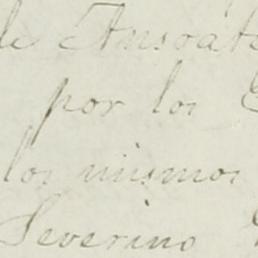 de Ansoáte
por los
los mismos
Severino